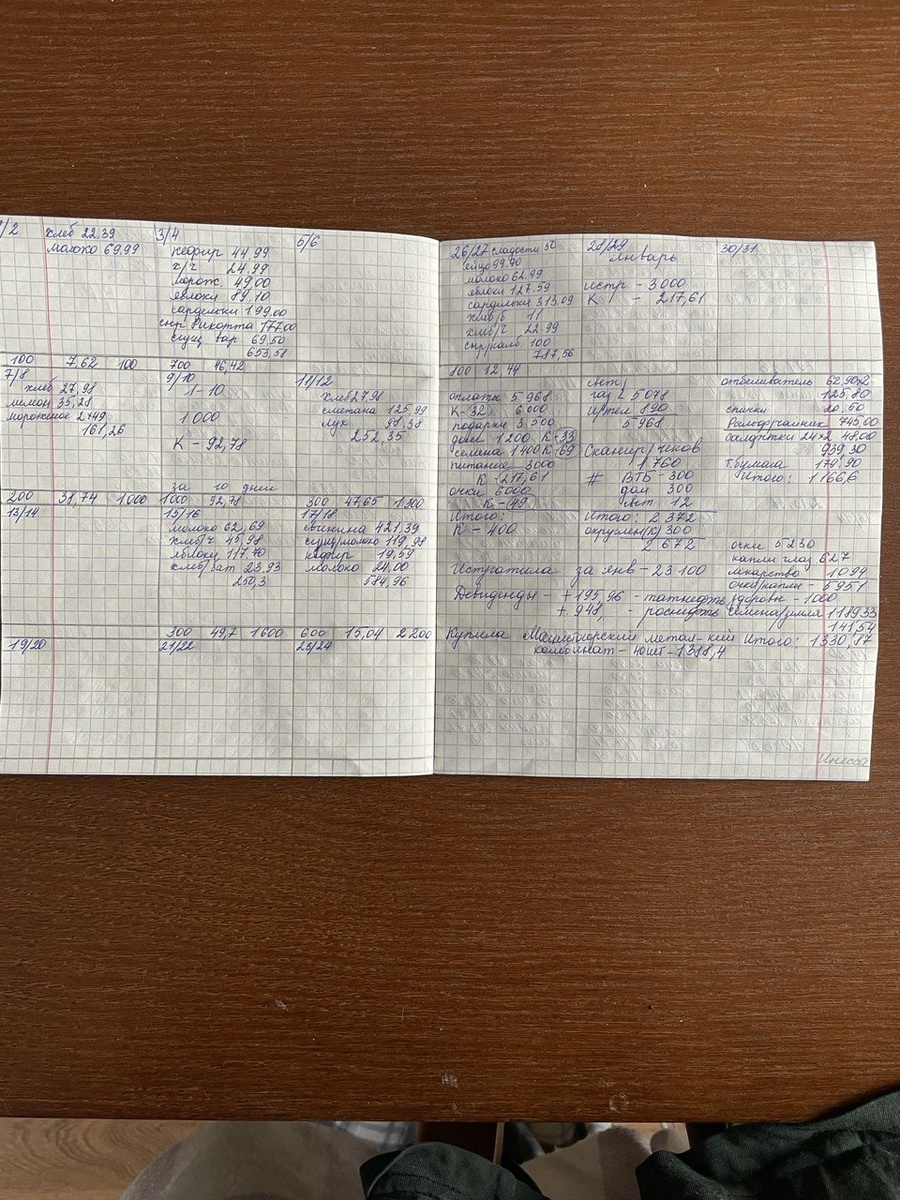 1/2
хлеб 22.39
молоко 69,99
100 7,62 100
3/4
кефир 44,99
х/ч 24,99
морож. 49,00
яблоки 89,10
сардельки 199,00
сыр Рикотта 177,00
сгущ вар 69,50
653,58
700 46,42
5/6
7/8
хлеб 27,98
лимон 35,28
мороженое 2×49
161,26
200 38,74 1000
9/10
1-10
1 000
К - 92,78
за 10 дней
1000 92,78
11/12
хлеб 27,98
сметана 125,99
лук 98,38
252,35
300 47,65 1300
13/14
15/16
молоко 62,69
хлеб/ч 45,98
яблоки 117,70
хлеб/бат 23,93
250,3
300 49,7 1600
17/18
свинина 421,39
сгущ/молоко 119,98
кефир 19,59
молоко 24,00
584,96
600 15,04 2 200
19/20
21/22
23/24
26/27 сладости 50
яйцо 99,90
молоко 62,99
яблоки 127,59
сардельки 313,09
хлеб/б 11
хлеб/ч 22,99
сыр/колб 100
787,56
800 12 44
28/29
Январь
истр - 3 000
К - 217,61
30/31
оплаты 5 968
К-32 6 000
подарки 3 500
дом 1 200 К-33
семена 1 400 К-69
питание 3000
К - 217,61
очки 6000
К - 49
Итого:
К - 400
лет
газ 5 078
ир/тел 890
5 968
Сканир/чеков
1 760
# ВТБ - 300
дом 300
лет - 12
Итого: 2 372
округлен(К) 300
2 672
отбеливатель 62,90×2
125,80
спички 20,50
745,00
салфетки 24×2 48,00
939,30
т.бумага 179,90
Итого: 1166,6
очки 5 230
капли глаз 627
лекарство 1094
очки/капли - 5951
Истратила за янв - 23 100
Девиденды - + 195,96 - татнефть
+ 948,- - роснефть
здоровье - 1000
семена/земля 1 189,33
141,54
Итого: 1330,87
Купила Магнитогорский метал-кий
комбинат - 40шт - 1318,4
Инесса